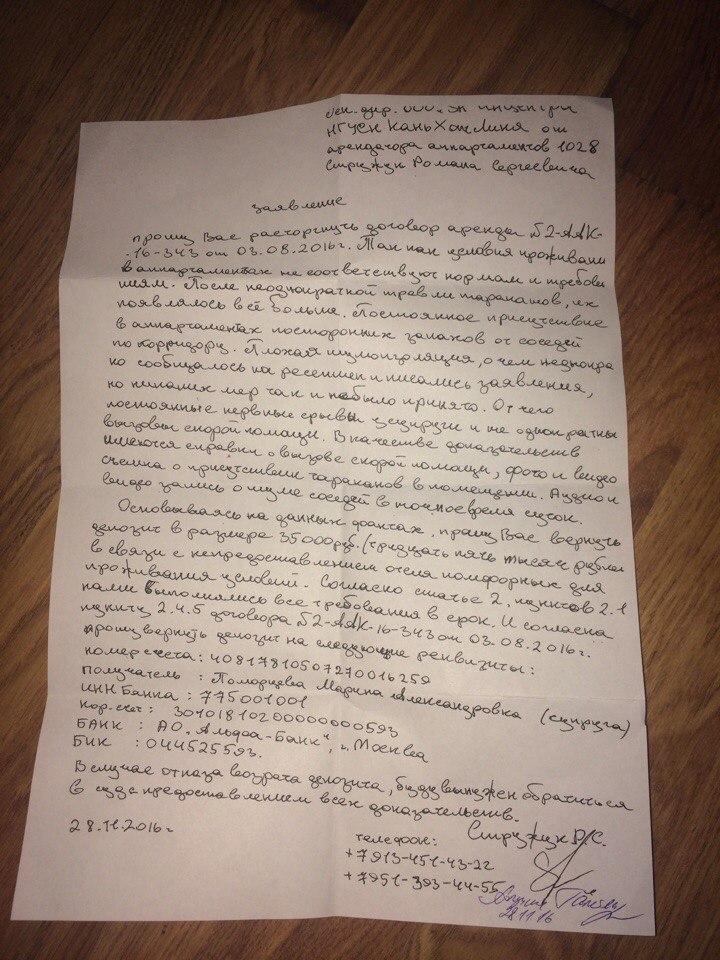 Ген. дир. ООО
НГУЕН Кань Хоанг Линя от
арендатора аппартаментов 1028
Стружук Романа Сергеевича
заявление
прошу Вас расторгнуть договор аренды Б2-ААК-
-16-343 от 03.08.2016г. Так как условия проживани
в аппартаментах не соответствуют нормам и требова
ниям. После неоднократной травли тараканов, их
появлялось всё больше. Постоянное присутствие
в аппартаментах посторонних запахов от соседей
по корридору. Плохая шумоизоляция, о чем неоднокра
но сообщалось на ресепшен и писались заявления,
но никаких мер так и не было принято. От чего
постоянные нервные срывы у супруги и не однократные
вызовы скорой помощи. В качестве доказательств
имеются справки о вызове скорой помощи, фото и видео
съемка о присутствии тараканов в помещении. Аудио и
видео запись о шуме соседей в ночное время суток.
Основываясь на данных фактах, прошу Вас вернуть
депозит в размере 35000руб. (тридцать пять тысяч рублей
в связи с непредоставлением отеля комфорных для
проживания условий. Согласно статье 2, пунктов 2.1
нами выполнялись все требования в срок. И согласна
пункту 2.4.5 договора Б2-ААК-16-343 от 03.08.2016г.
прошу вернуть депозит на следующие реквизиты:
номер счета: 40817810507270016259
Получатель : Поморцева Марина Александровка (супруга)
ИНН Банка : 775001001
Кор. счет: 30101810200000000593
БАНК : АО „Альфа-Банк", г. Москва
БИК : 044525593.
В случае отказа возрата депозита, буду вынужен обратиться
в суд с предоставлением всех доказательств.
28.11.2016г
Стружук Р.С.
телефон:
+7913-451-43-22
+7951-393-44-55
28.11.16